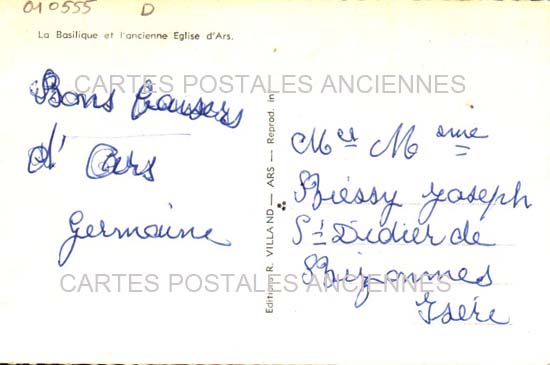 010555 D
La Basilique et l'ancienne Eglise d'Ars.
CARTES POSTALES ANCIENNES
Bons baisers
d' Ars
Germaine
Editions R. VILLAND — ARS — Reprod. in
Mr et Mme
Biessy Joseph
St Didier de
Bizonnes
Isère
CARTES POSTALES ANCIENNES